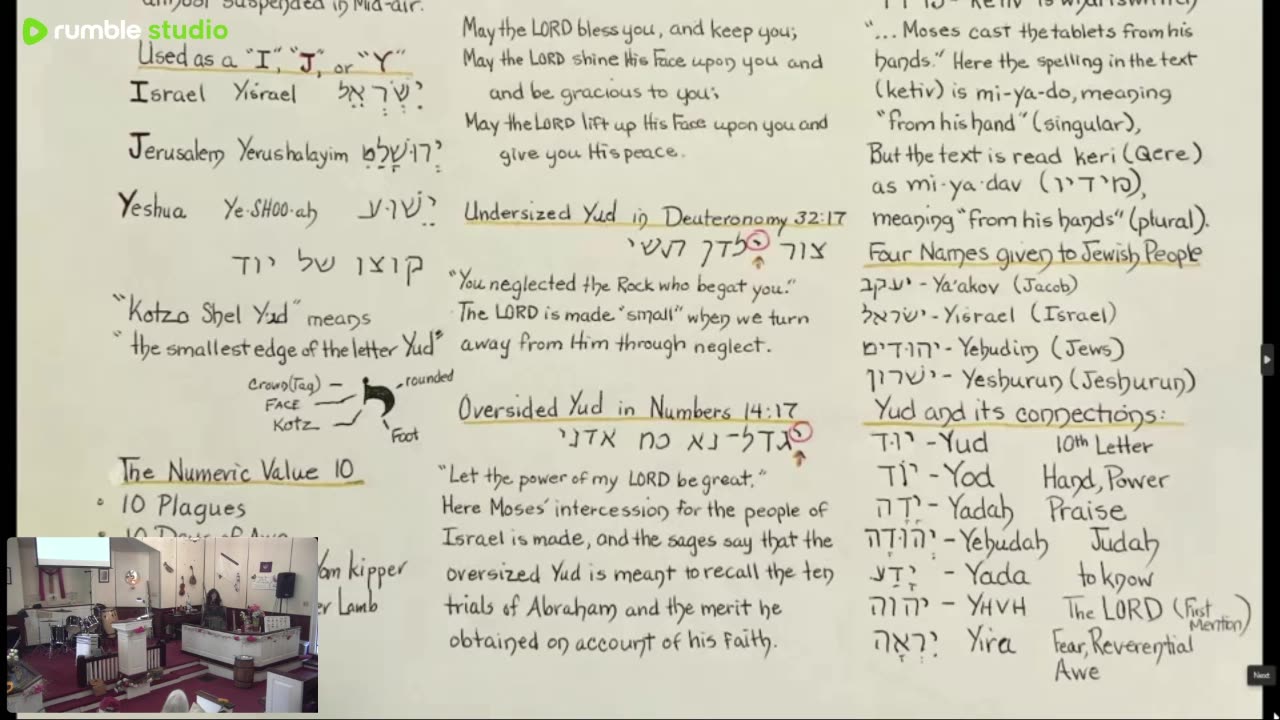 rumble studio
almost suspended in Mid-air.
Used as a "I", "J", or "Y"
Israel Yisrael יִשְׂרָאֵל
Jerusalem Yerushalayim יְרוּשָׁלַםִ
Yeshua Ye·SHOO·ah יֵשׁוּעַ
קוצו של יוד
"Kotzo Shel Yud" means
"the smallest edge of the letter Yud"
Crown(Tag)
rounded
FACE
Kotz
Foot
The Numeric Value 10
• 10 Plagues
Yom Kipper
Lamb
May the LORD bless you, and keep you;
May the LORD shine His Face upon you and
and be gracious to you;
May the LORD lift up His Face upon you and
give you His peace.
Undersized Yud in Deuteronomy 32:17
צור ילדך תשי
"You neglected the Rock who begat you."
The LORD is made "small" when we turn
away from Him through neglect.
Oversided Yud in Numbers 14:17
יגדל-נא כח אדני
"Let the power of my LORD be great."
Here Moses' intercession for the people of
Israel is made, and the sages say that the
oversized Yud is meant to recall the ten
trials of Abraham and the merit he
obtained on account of his faith.
"... Moses cast the tablets from his
hands." Here the spelling in the text
(ketiv) is mi-ya-do, meaning
"from his hand" (singular),
But the text is read keri (Qere)
as mi-ya-dav (מידיו),
meaning "from his hands" (plural).
Four Names given to Jewish People
יעקב - Ya'akov (Jacob)
ישראל - Yisrael (Israel)
יהודים - Yehudim (Jews)
ישרון - Yeshurun (Jeshurun)
Yud and its connections:
יוּד - Yud 10th Letter
יוֹד - Yod Hand, Power
יָדָה - Yadah Praise
יְהוּדָה - Yehudah Judah
יָדַע - Yada to know
יהוה - YHVH The LORD (First Mention)
יִרְאָה - Yira Fear, Reverential
Awe
Next